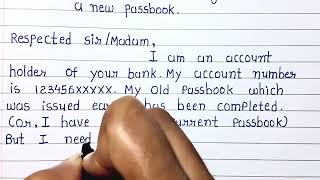 a new passbook.
Respected Sir/Madam,
I am an account
holder of your bank. My account number
is 123456XXXXX. My Old Passbook which
was issued ea has been completed.
(or, I have current Passbook)
But I need